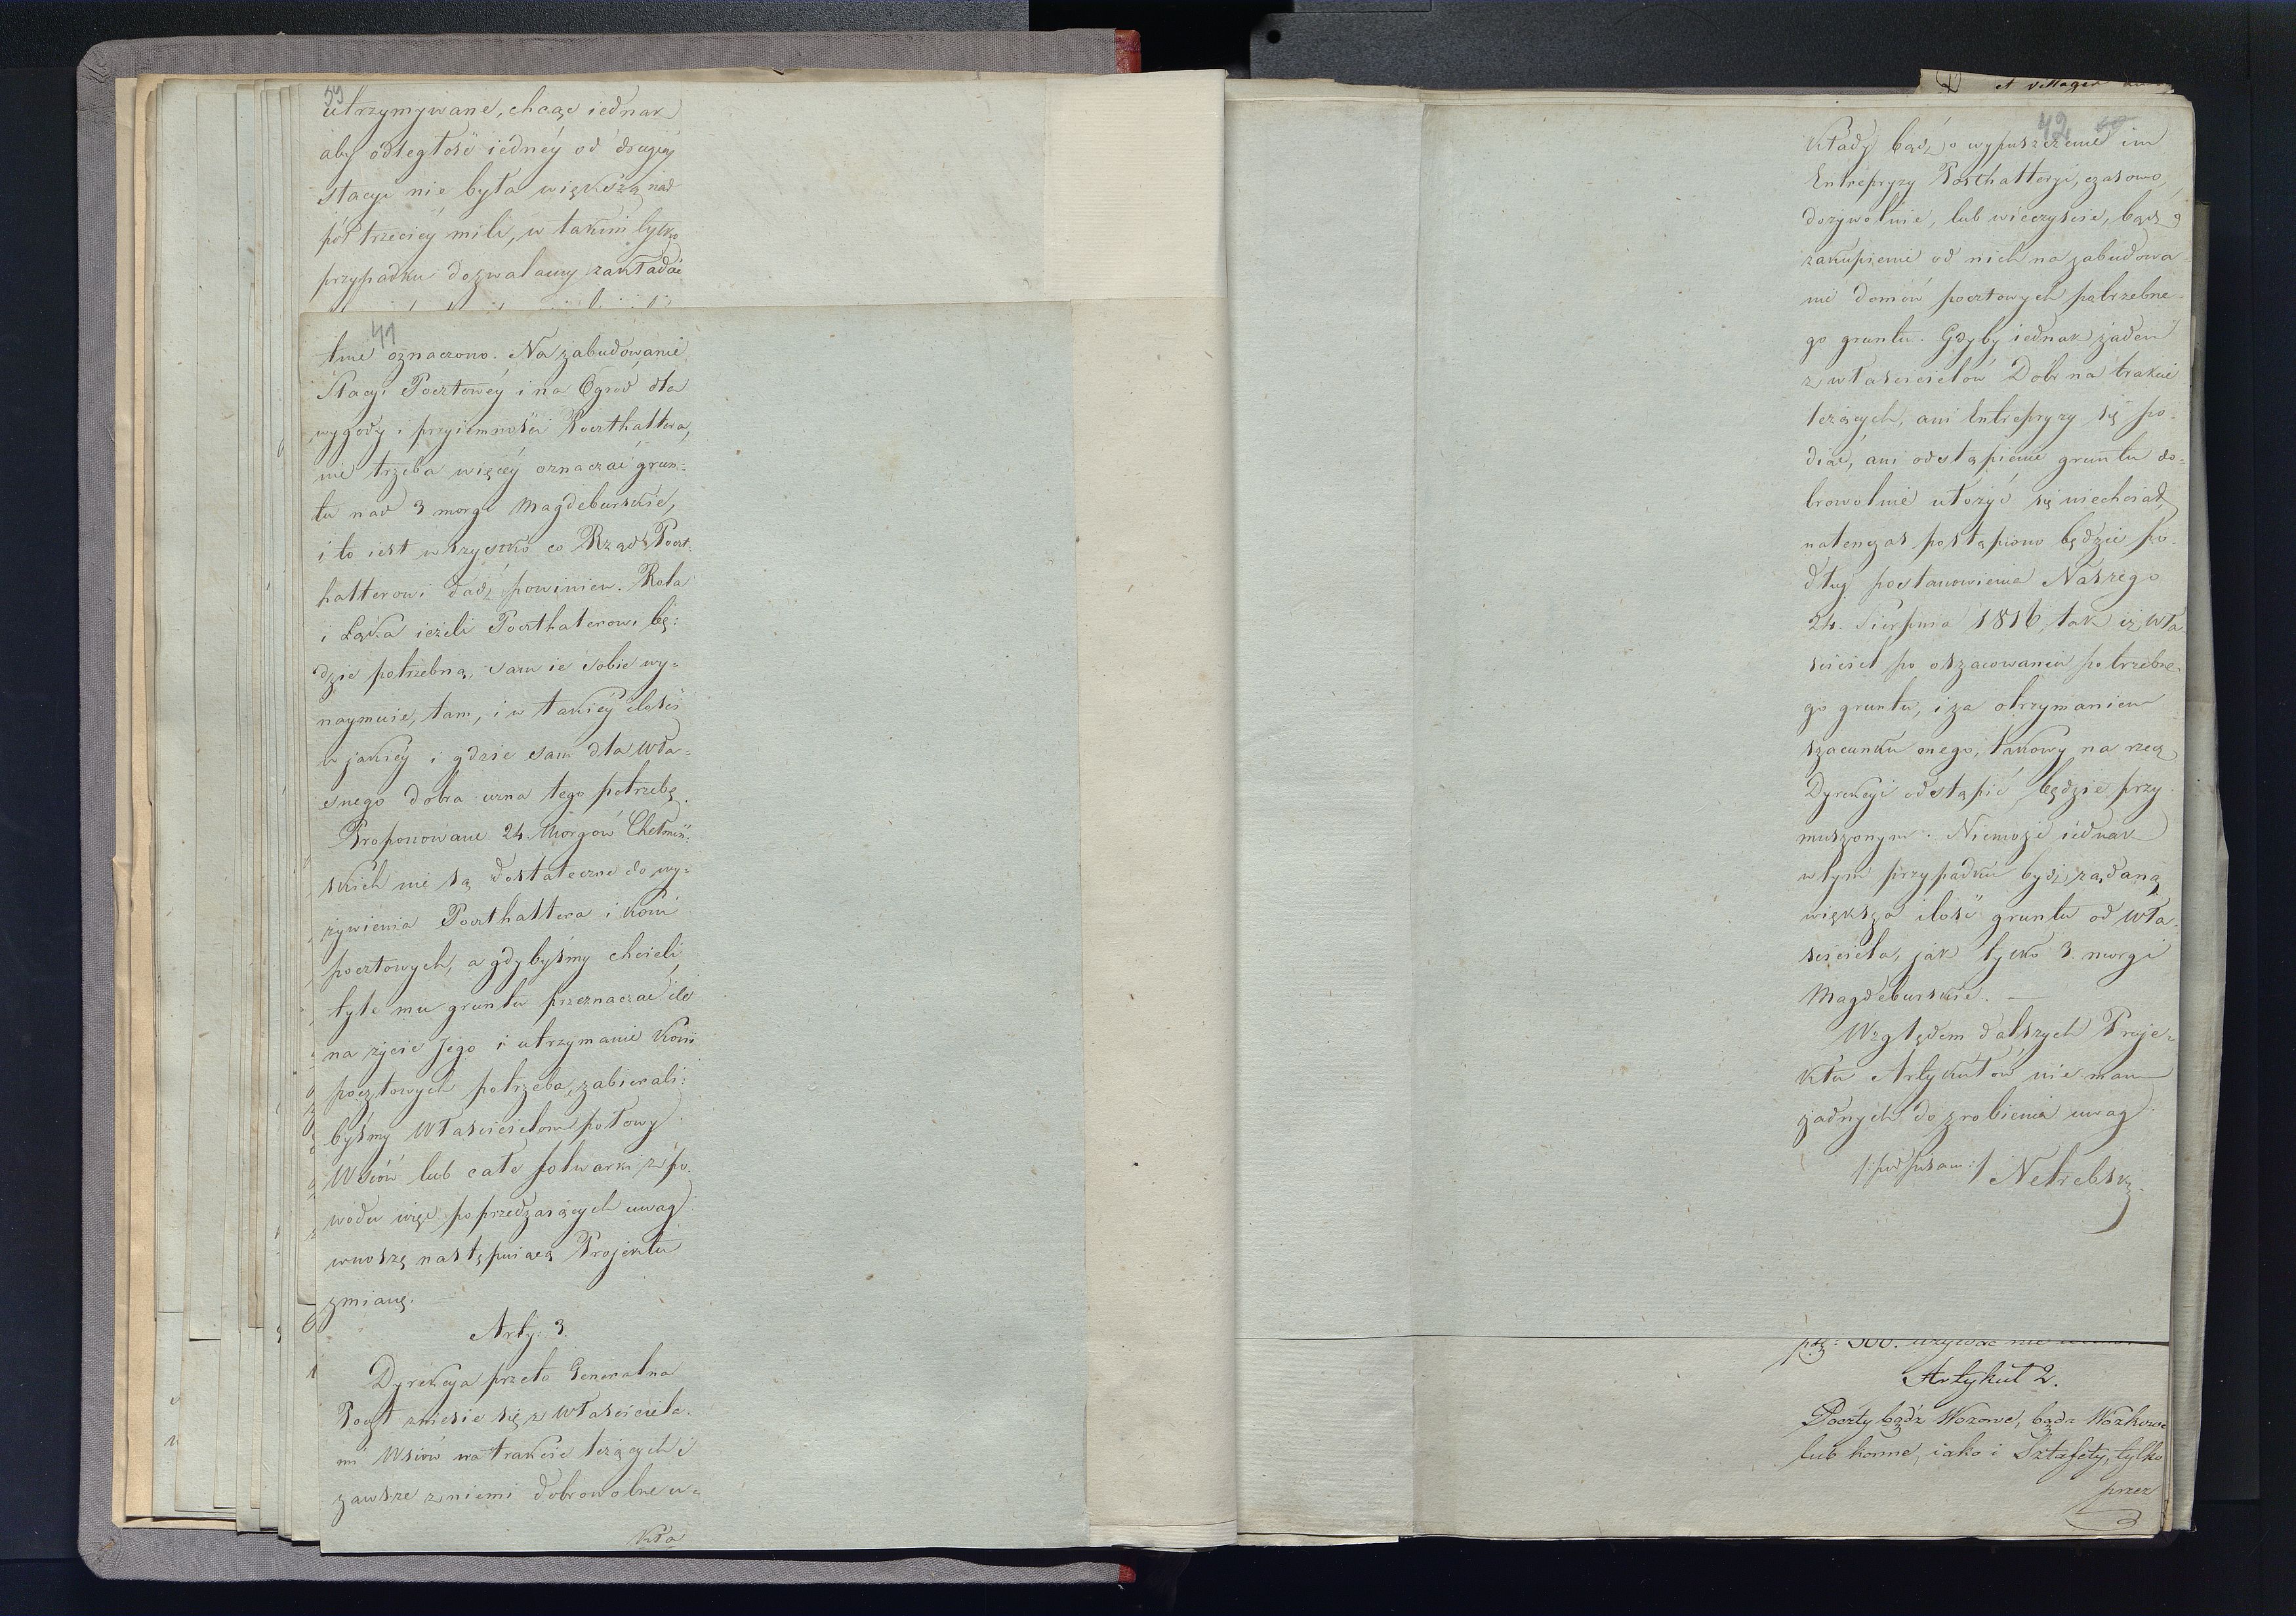 59
utrzymywane, chcąc iednak
aby odległość iedney od drugiey
stacyi nie była większą nad
pół trzeciey mili, w takim tylko
przypadku dozwalamy zakładać
41
tnie oznaczono. Na zabudowanie
Stacyi Pocztowéy i na Ogród dla
wygody i przyiemności Poczthaltera,
nie trzeba więcéy oznaczać grun:
tu nad 3 morgi Magdeburskie,
i to iest wszystko co Rząd Poczt:
halterowi dadź powinien. Rola
i Łąka ieżeli Poczthalterowi bę:
dzie potrzebną, sam ie sobie wy=
naymuie, tam, i w takiéy ilości
w jakiéy i gdzie sam dla wła=
snego dobra uzna tego potrzebę.
Proponowane 24. Morgów Chełmiń:
skich nie są dostateczne do wy=
żywienia Poczthaltera i koni
pocztowych, a gdybyśmy chcieli
tyle mu gruntu przeznaczać ile
na życie Jego i utrzymanie koni
pocztowych potrzeba, zabierali:
byśmy Właścicielom połowy
Wsiów lub całe folwarki z po:
wodu więc poprzedzaiących uwag
wnoszę następuiącą Projektu
zmianę.
Arty: 3.
Dyrekcya przeto Generalna
Poczt zniesie się z Właściciela:
mi Wsiów na trakcie leżących i
zawsze z niemi dobrowolne u=
kła
et villages
42 60
kłady bądź o wypuszczenie im
Entrepryzy Poczthalteryi, czasowo,
dożywotnie, lub wieczyście, bądź o
zakupienie od nich na zabudowa
nie domów pocztowych potrzebne-
go gruntu. Gdyby iednak żaden
z właścicielów Dóbr na trakcie
leżących, ani Entrepryzy się po-
diąć, ani odstąpienie gruntu do-
browolnie ułożyć się niechciał,
natenczas postąpiono będzie po-
dług postanowienia Naszego
24. Sierpnia 1816, tak iż wła
ściciel po oszacowaniu potrzebne-
go gruntu, i za otrzymaniem
szacunku onego, takowy na rzecz
Dyrekcyi odstąpić będzie przy
muszonym. Niemoże iednak
w tym przypadku bydź żądaną
większa ilość gruntu od wła-
ściciela, jak tylko 3. morgi
Magdeburskie. —
Względem dalszych Proje=
ktu Artykułów nie mam
żadnych do zrobienia uwag.
/:podpisano:/ Netrebski
używać nie
Artykuł 2.
Poczty bądź Wozowe, bądz Wózkowe
lub konne, iako i Sztafety, tylko
przez